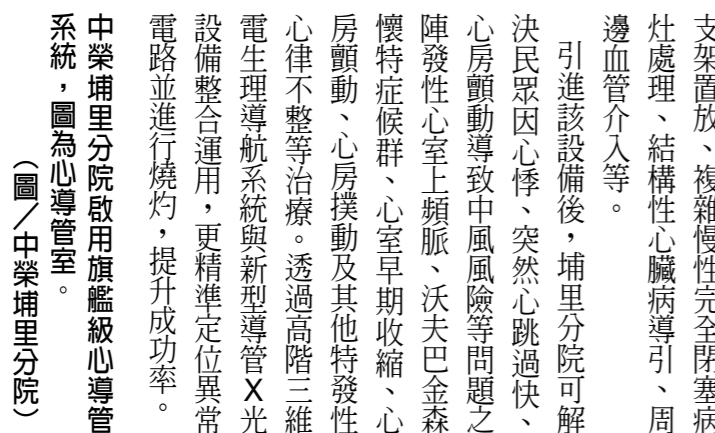 支架置放、複雜慢性完全閉塞病
灶處理、結構性心臟病導引、周
邊血管介入等。
引進該設備後，埔里分院可解
決民眾因心悸、突然心跳過快、
心房顫動導致中風風險等問題之
陣發性心室上頻脈、沃夫巴金森
懷特症候群、心室早期收縮、心
房顫動、心房撲動及其他特發性
心律不整等治療。透過高階三維
電生理導航系統與新型導管X光
設備整合運用，更精準定位異常
電路並進行燒灼，提升成功率。
中榮埔里分院啟用旗艦級心導管
系統，圖為心導管室。
（圖／中榮埔里分院）